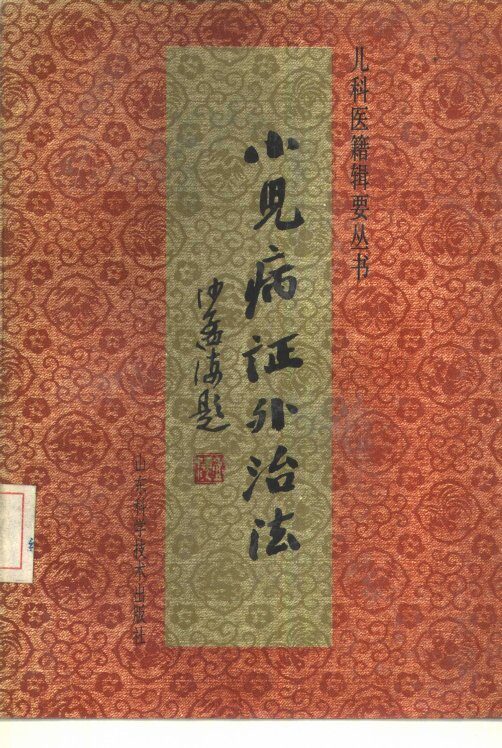 儿科医籍辑要丛书
小児病证外治法
沙孟海题
山东科学技术出版社